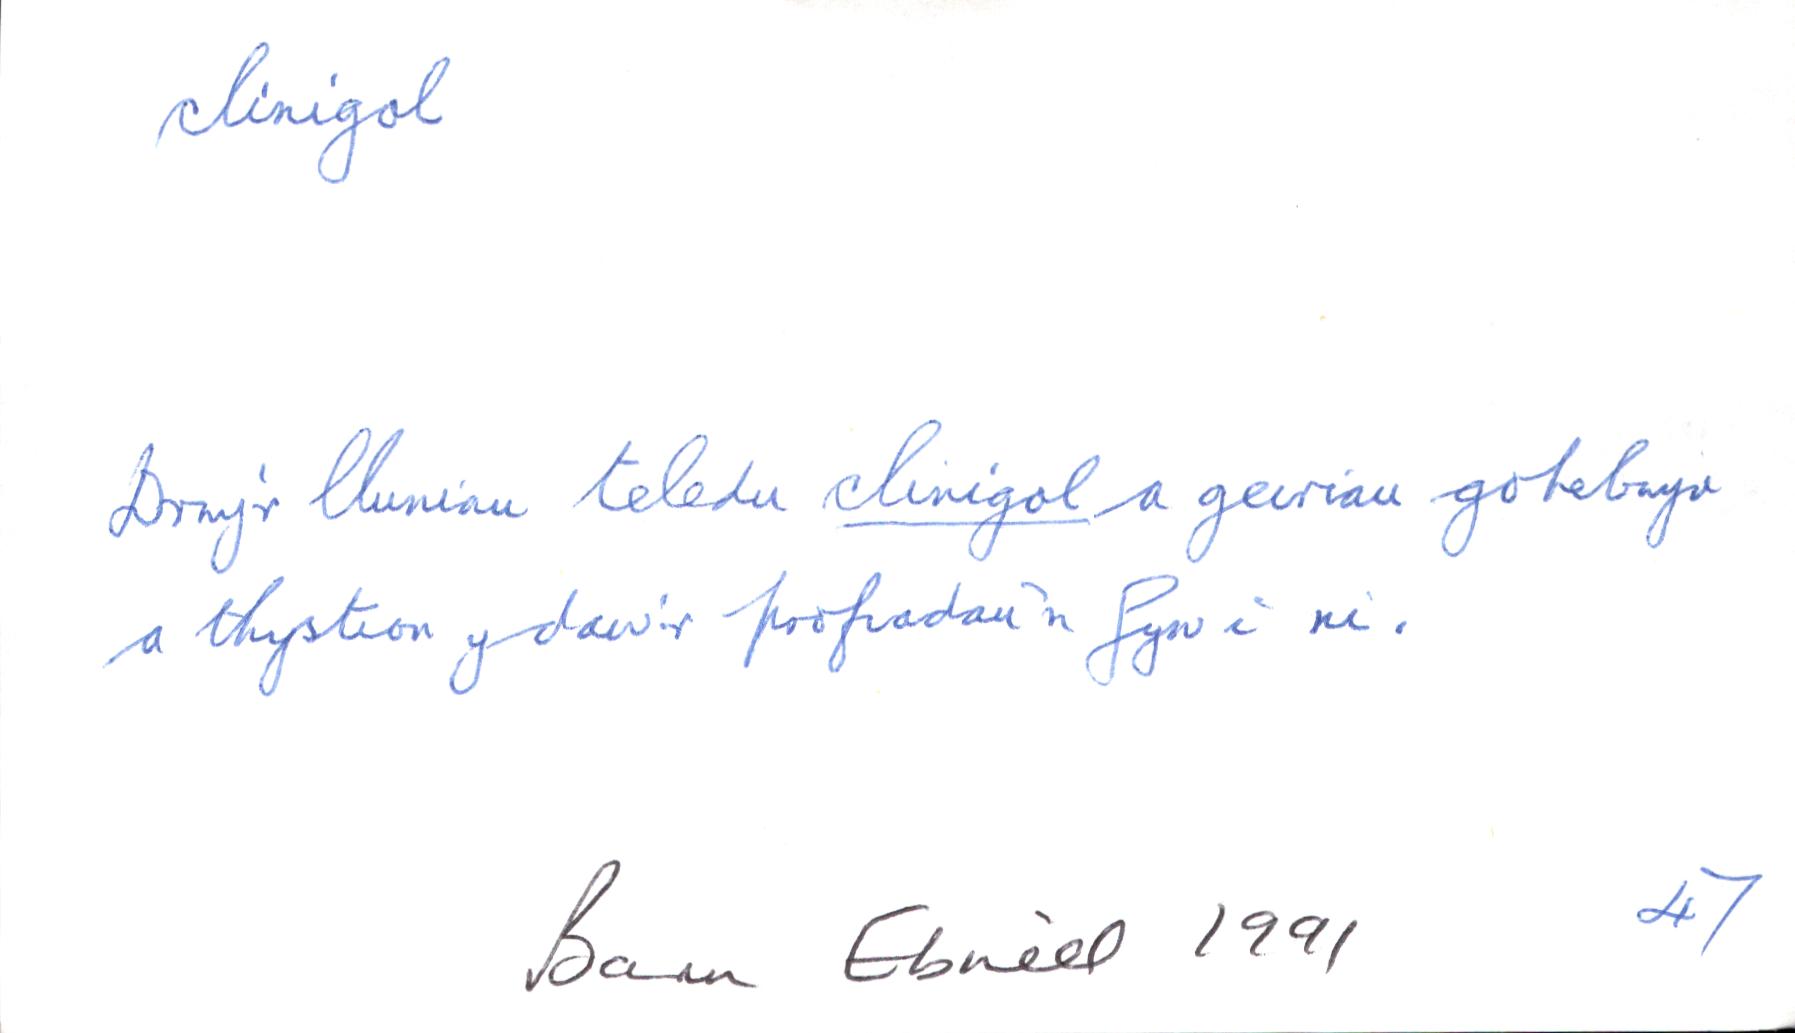 clinigol
Drwy'r lluniau teledu clinigol a geiriau gohebwyr
a thystion y daw'r profiadau'n fyw i ni.
Barn Ebrill 1991
47